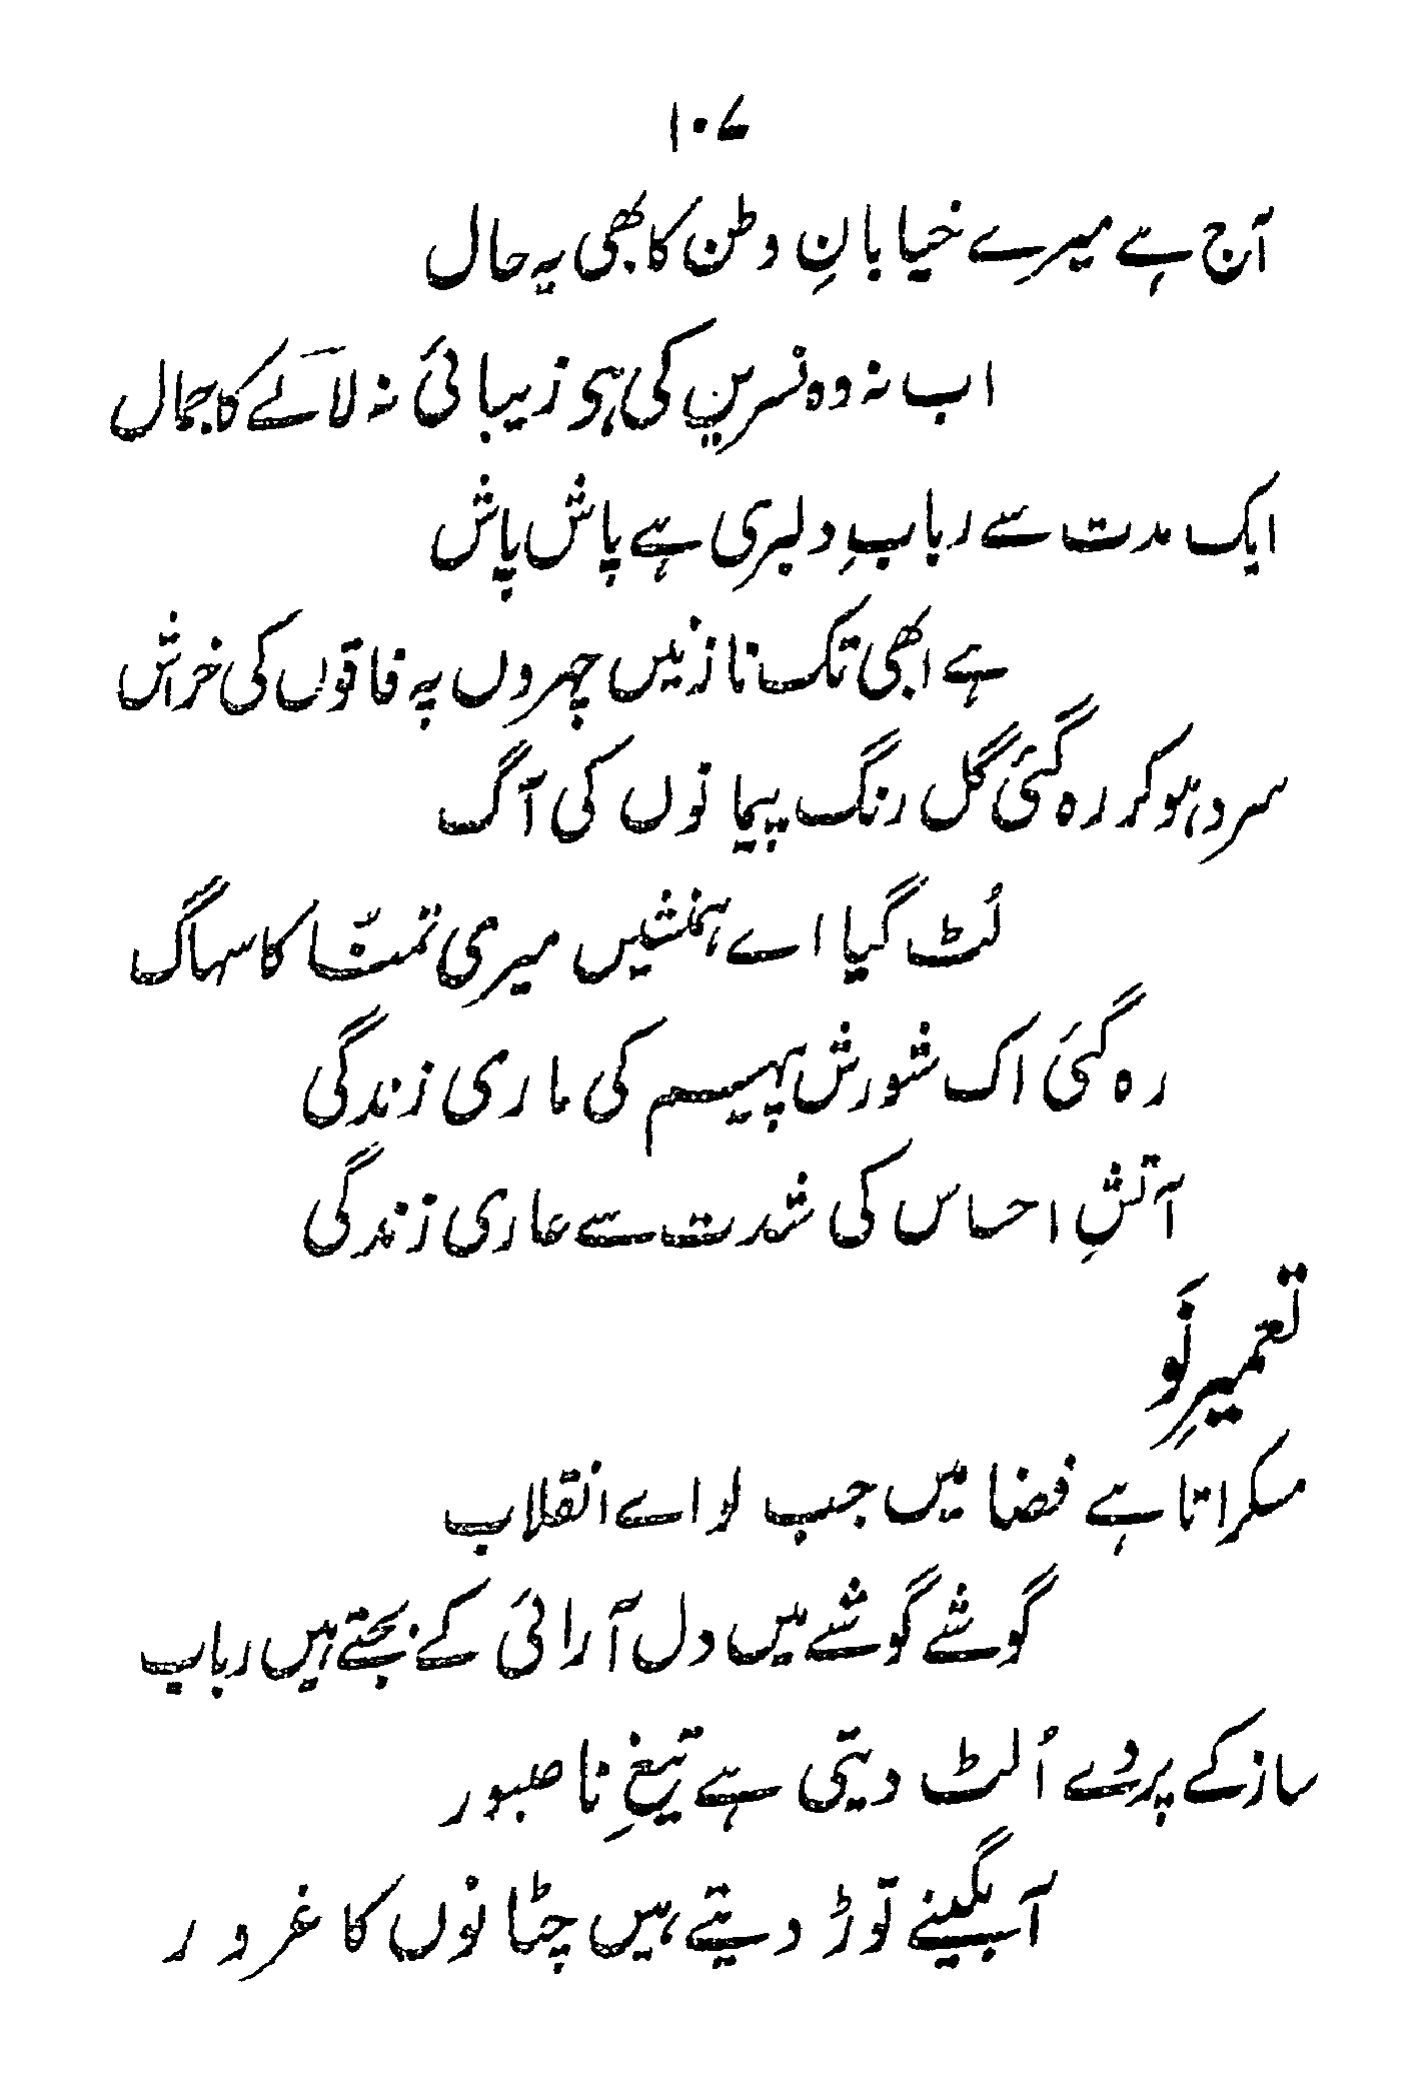 ۱۰۷
آج ہے میرے خیابانِ وطن کا بھی یہ حال
اب نہ وہ نسرین کی ہی زیبائی نہ لالَے کا جمال
ایک مدت سے ربابِ دلبری ہے پاش پاش
ہے ابھی تک نازنیں چہروں پہ فاقوں کی خراش
سرد ہو کر رہ گئی گل رنگ پیمانوں کی آگ
لُٹ گیا اے ہمنشیں میری تمنّا کا سہاگ
رہ گئی اک شورش پیہم کی ماری زندگی
آتشِ احساس کی شدت سے عاری زندگی
تعمیرِ نَو
مسکراتا ہے فضا میں جب لواے انقلاب
گوشے گوشے میں دل آرائی کے بجتے ہیں رباب
ساز کے پردے اُلٹ دیتی ہے تیغِ ناصبور
آبگینے توڑ دیتے ہیں چٹانوں کا غرور